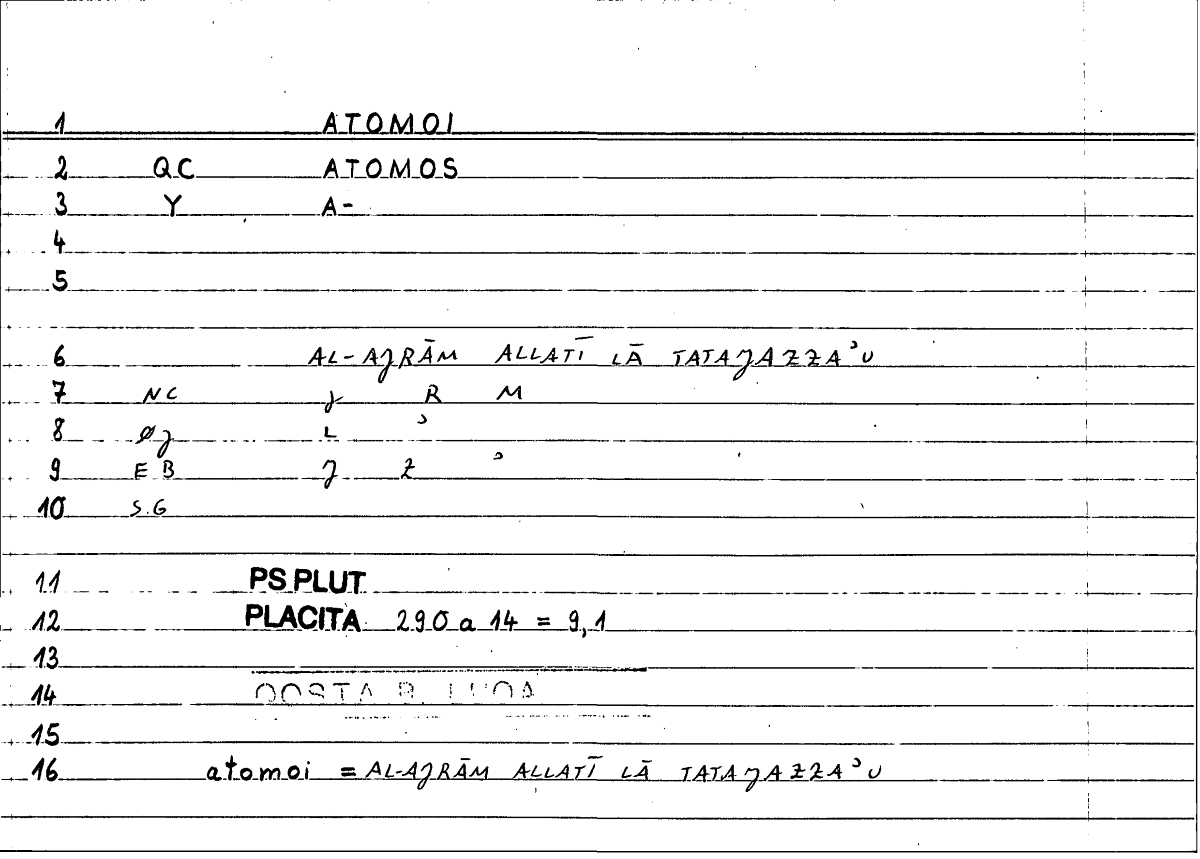 1 ATOMOI
2 QC ATOMOS
3 Y A-
4
5
6 AL-AJRĀM ALLATĪ LĀ TATAJAZZAʾU
7 NC J R M
8 ØJ L ʾ
9 EB J Z ʾ
10 S.G
11 PS PLUT
12 PLACITA 290 a 14 = 9,1
13
14 QOSTA B. LUQA
15
16 atomoi = AL-AJRĀM ALLATĪ LĀ TATAJAZZAʾU